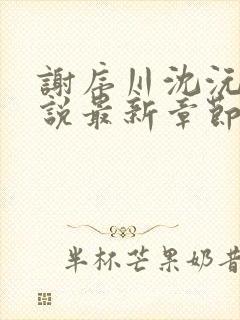 謝辰川沈沅
說最新章節
半杯芒果奶昔